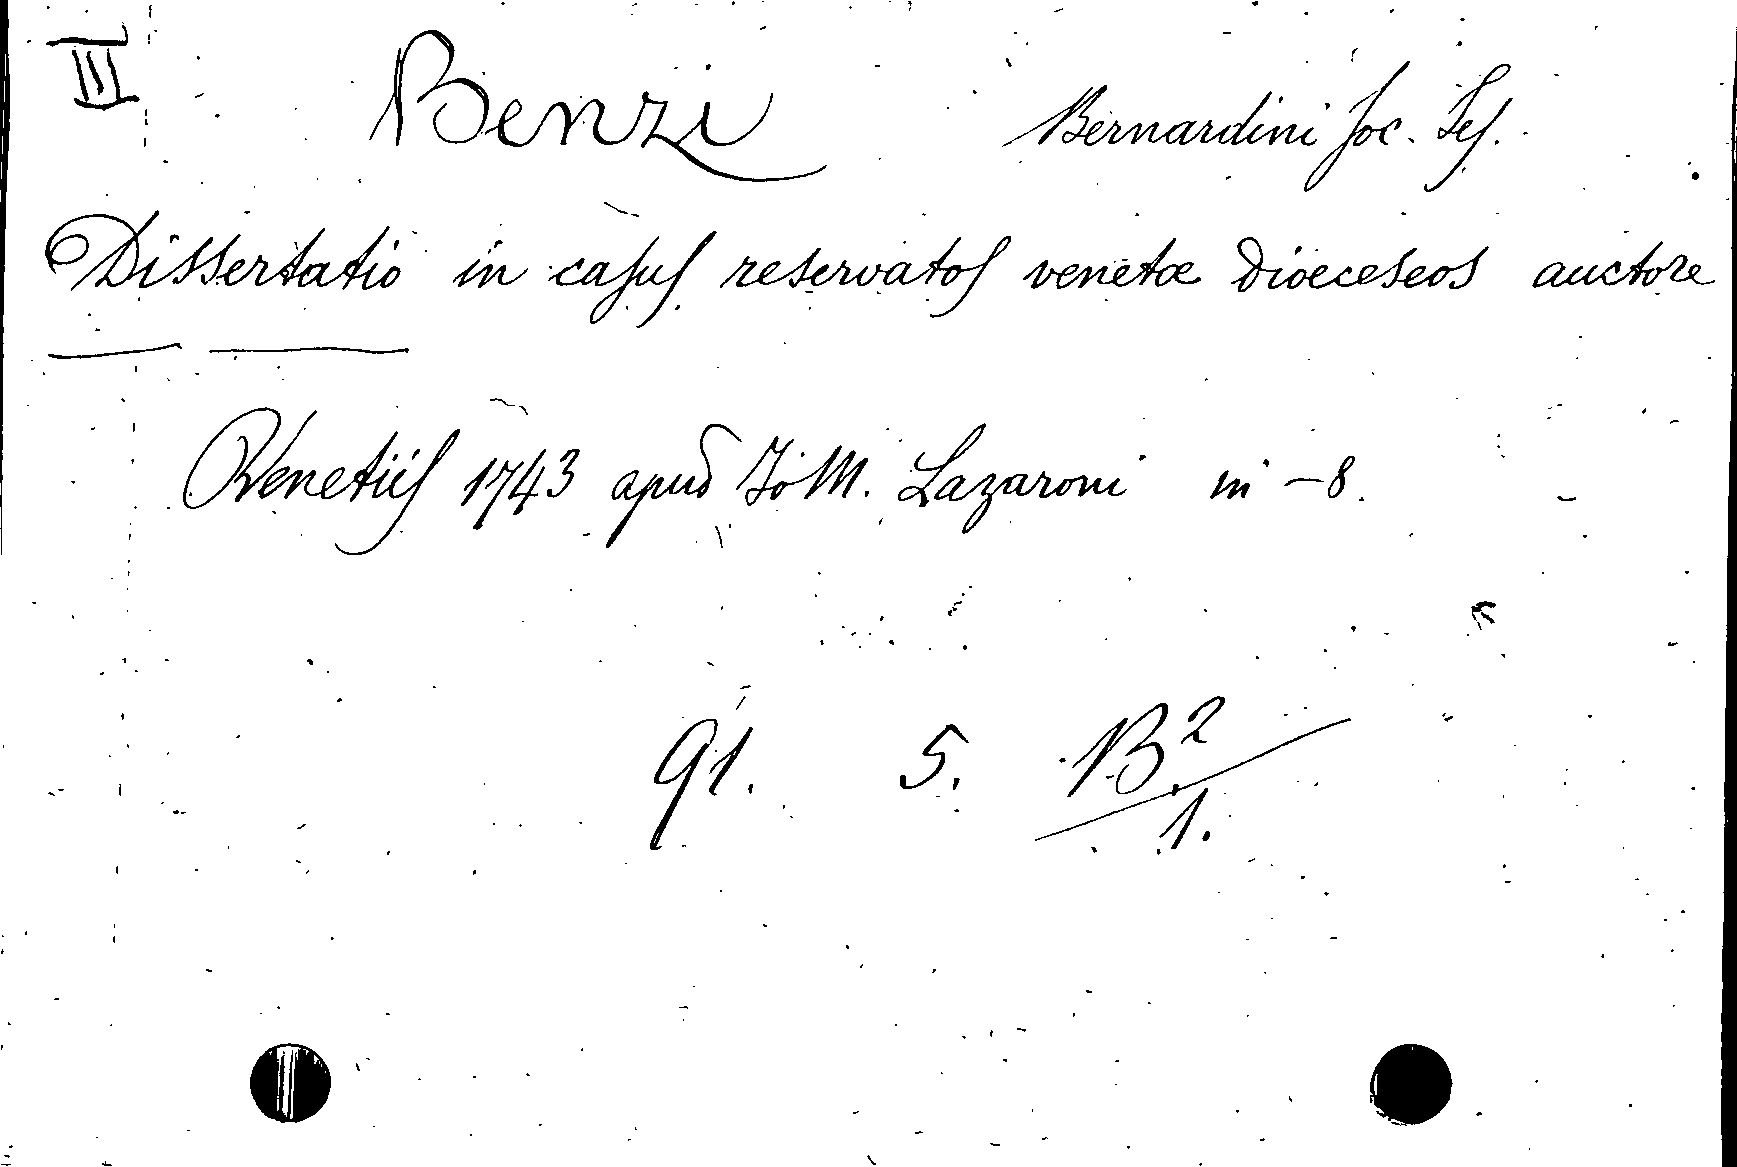 III Benzi Bernardini Soc. Jes.
Dissertatio in casus reservatos venetæ Dioeceseos auctore
— —
Venetiis 1743 apud Jo M. Lazaroni in -8.
91. 5. B2
1.